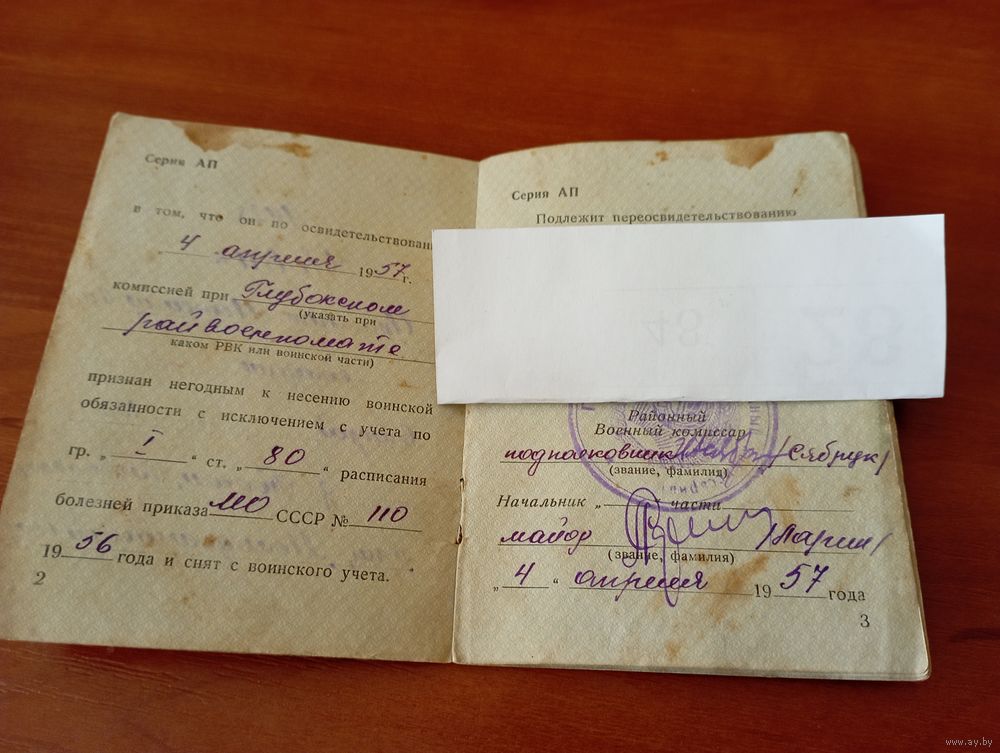 Серия АП
в том, что он по освидетельствовани
„ 4 апреля 1957 г.
комиссией при Глубокском
(указать при
райвоенкомате
каком РВК или воинской части)
признан негодным к несению воинской
обязанности с исключением с учета по
гр. „ I “ ст. „ 80 “ расписания
болезней приказа МО СССР № 110
1956 года и снят с воинского учета.
2
Серия АП
Подлежит переосвидетельствованию
Районный
Военный комиссар
подполковник /Сябрук/
(звание, фамилия)
Начальник „ части
майор /Ларин/
(звание, фамилия)
„ 4 “ апреля 1957 года
3
www.ay.by